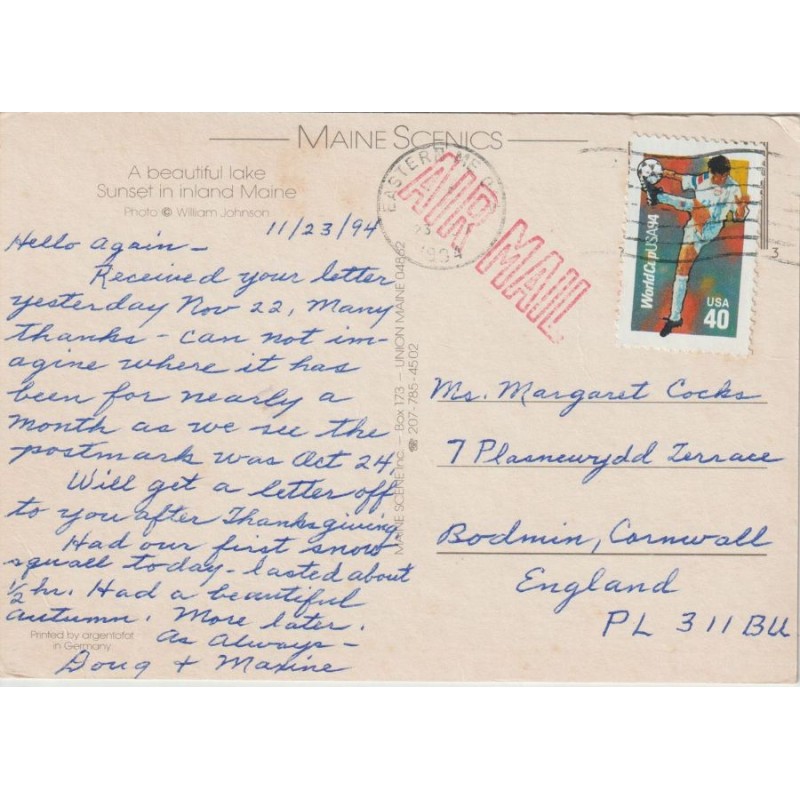 MAINE SCENICS
A beautiful lake
Sunset in inland Maine
Photo © William Johnson
11/23/94
Hello Again –
Received your letter
yesterday Nov 22, Many
thanks – Can not im-
agine where it has
been for nearly a
month as we see the
postmark was Oct 24,
Will get a letter off
to you after Thanksgiving
Had our first snow
squall today – lasted about
1/2 hr. Had a beautiful
autumn. More later.
As Always –
Doug + Maxine
Printed by argentofot
in Germany
MAINE SCENE Inc. – Box 173 – UNION MAINE 04862
☎ 207-785-4502
EASTERN ME
23
1994
AIR MAIL
World Cup USA 94
USA
40
3
Ms. Margaret Cocks
7 Plasnewydd Terrace
Bodmin, Cornwall
England
PL 311BU